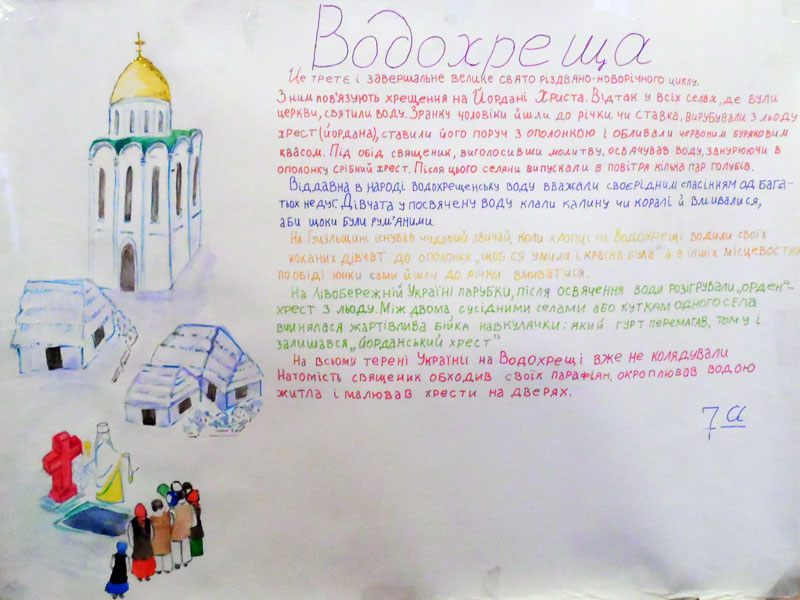 Водохреща
Це третє і завершальне велике свято різдвяно-новорічного циклу.
З ним пов'язують хрещення на Йордані Христа. Відтак у всіх селах, де були
церкви, святили воду. Зранку чоловіки йшли до річки чи ставка, вирубували з льоду
хрест (йордана), ставили його поруч з ополонкою і обливали червоним буряковим
квасом. Під обід священик, виголосивши молитву, освячував воду, занурюючи в
ополонку срібний хрест. Після цього селяни випускали в повітря кілька пар голубів.
Віддавна в народі водохрещенську воду вважали своєрідним спасінням од бага-
тьох недуг. Дівчата у посвячену воду клали калину чи коралі й вмивалися,
аби щоки були рум'яними.
На Гуцульщині існував чудовий звичай, коли хлопці на Водохрещі водили своїх
коханих дівчат до ополонки „щоб ся умили і красна була" а в інших місцевостях
по обіді юнки сами йшли до річки вмиватися.
На Лівобережній Україні парубки, після освячення води розігрували „орден"-
хрест з льоду. Між двома сусідніми селами або кутками одного села
вчинялася жартівлива бійка навкулачки: який гурт перемагав, тому і
залишався „йорданський хрест"
На всьому терені України на Водохрещі вже не колядували
Натомість священик обходив своїх парафіян, окроплював водою
житла і малював хрести на дверях.
7 а